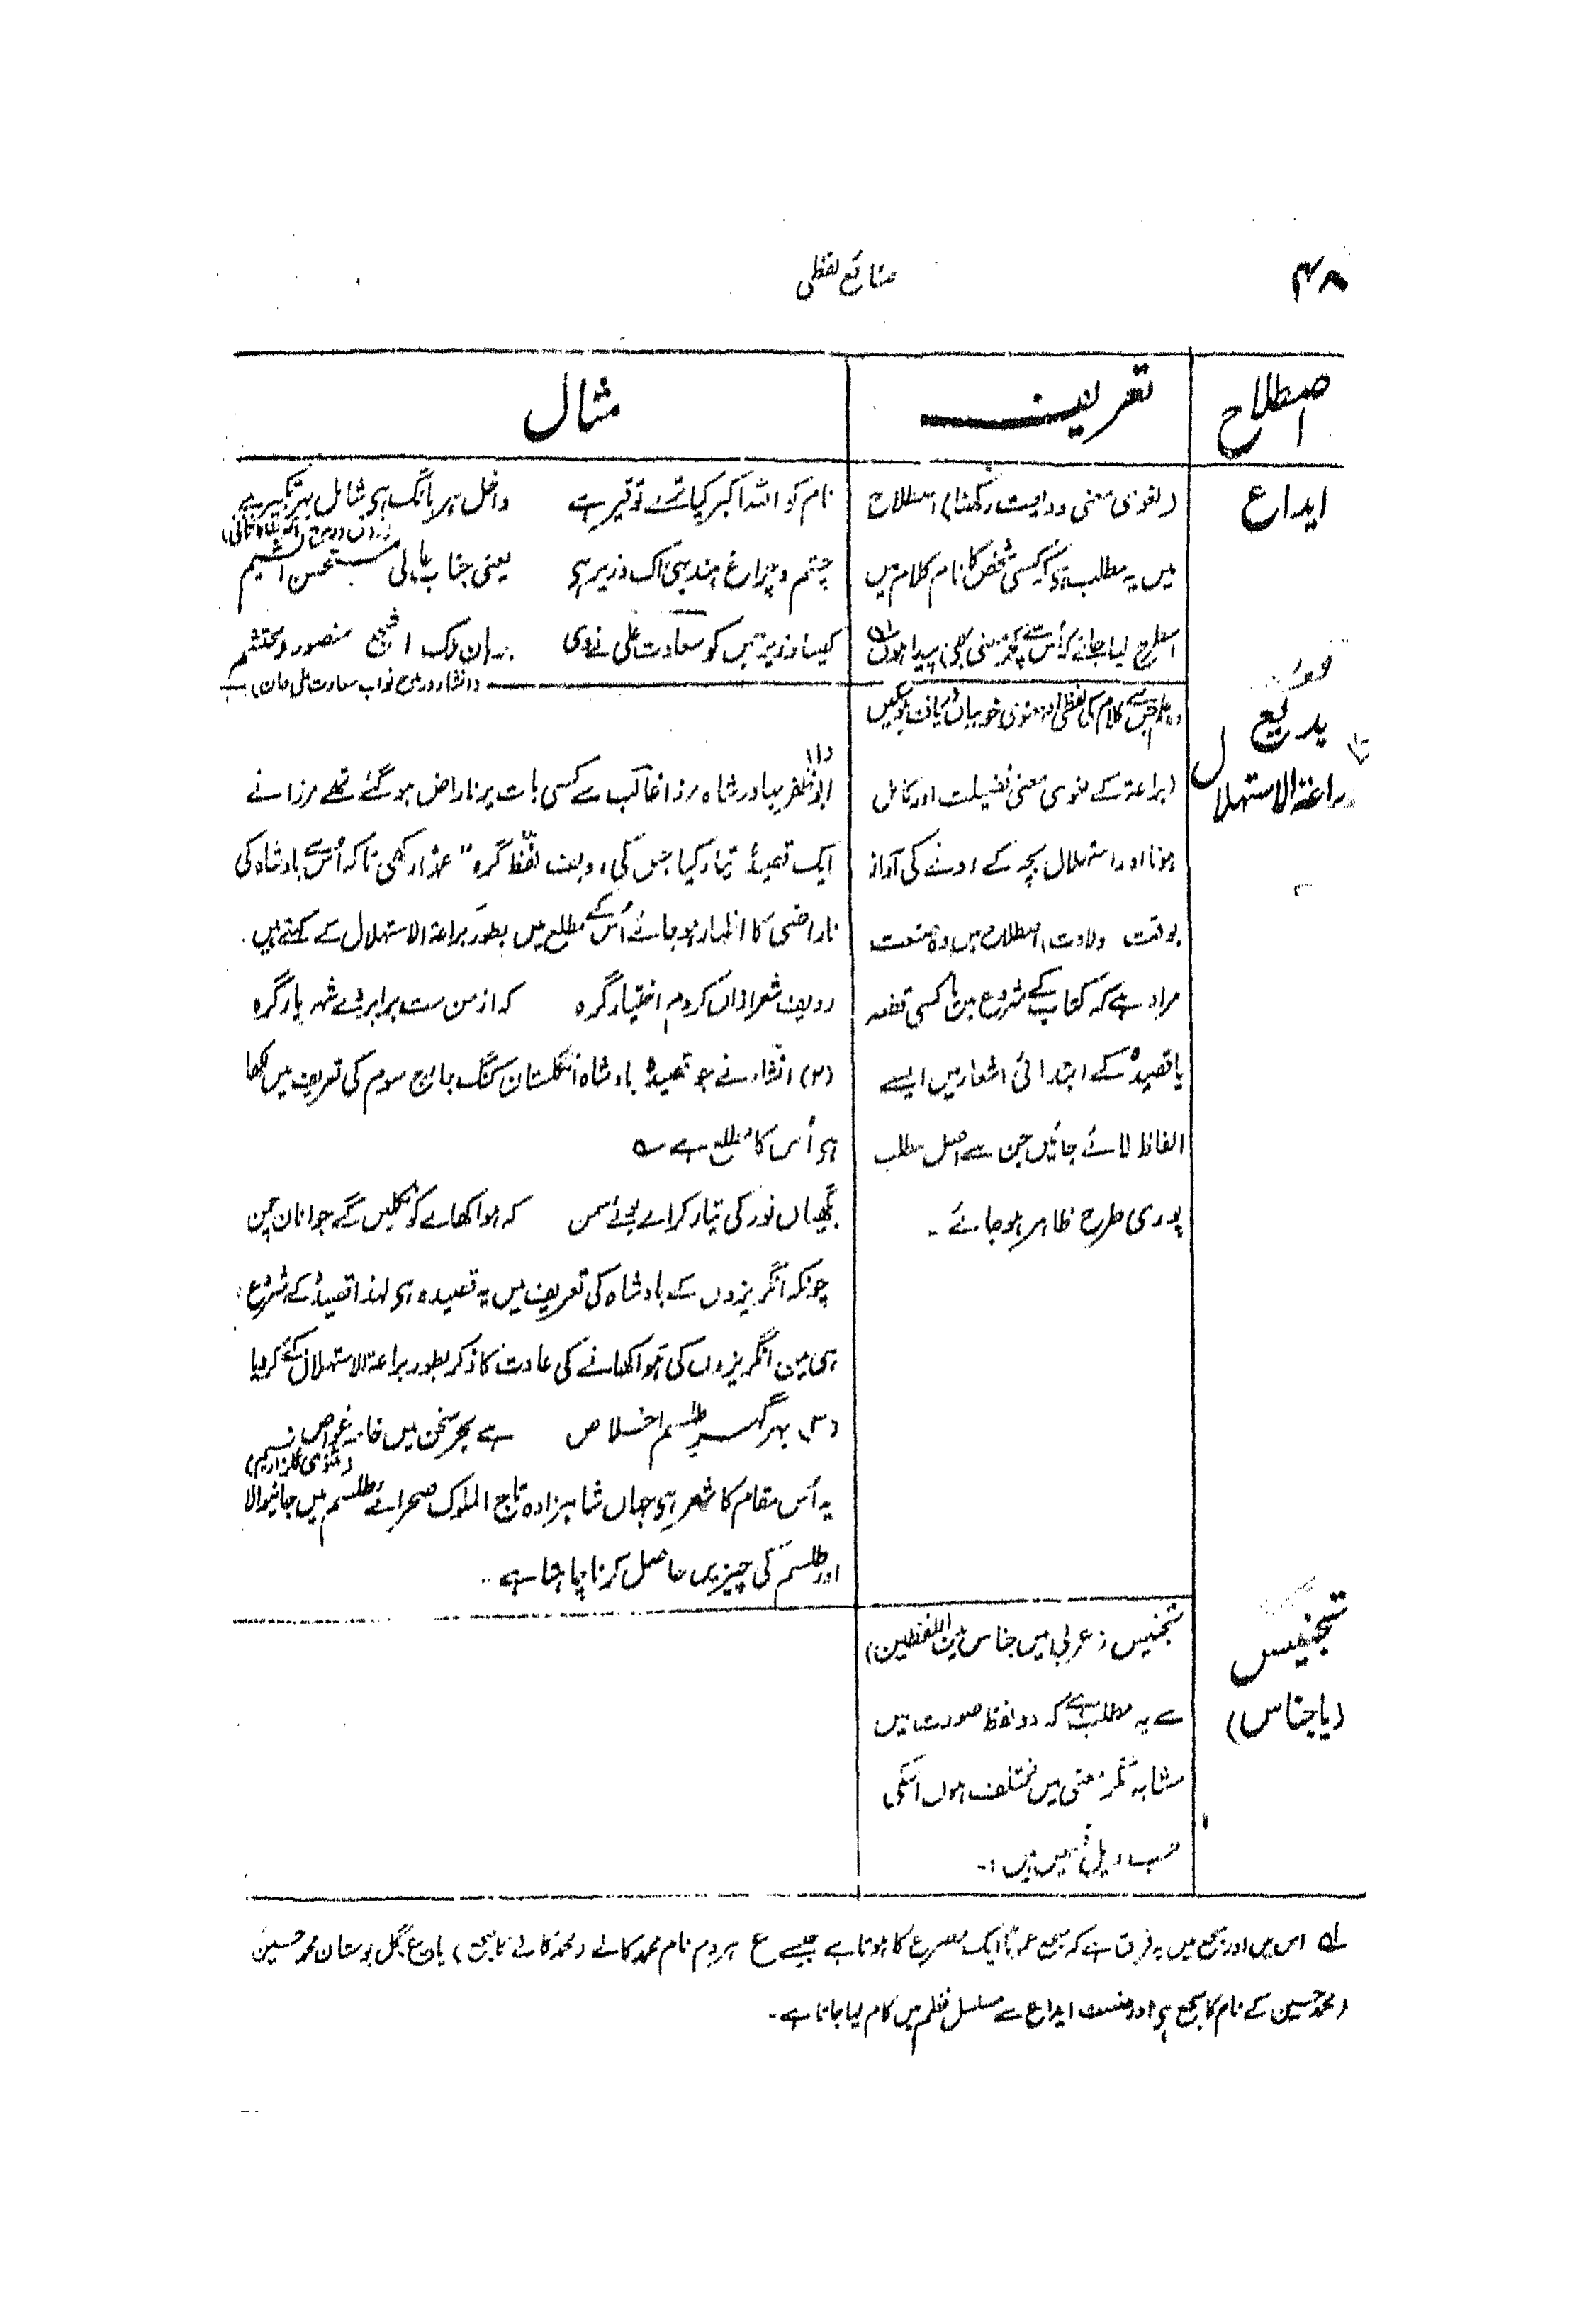 ۴۸
صنائع لفظی
اصطلاح
تعریف
مثال
ایداع
(لغوی معنی ودیعت رکھنا) اصطلاح
میں یہ مطلب ہو کہ کسی شخص کا نام کلام میں
اسطرح لیا جائے کہ اُس سے کچھ معنی بھی پیدا ہوں
نام کو اللہ اکبر کیا ترے توقیر ہے داخل ہر بانگ ہو شامل بہر تکبیر ہے
(ذوق در مدح اکبر شاہ ثانی)
چشم و چراغ ہند ہی اک وزیر ہی یعنی جناب عالی مستحسن الشیم
کیسا وزیر جس کو سعادت علی نے دی منصور و محتشم
(انشا در مدح نواب سعادت علی خاں)
بدیع
وہ علم جس سے کلام کی لفظی اور معنوی خوبیاں دریافت ہو سکیں
براعۃ الاستہلال
(براعۃ کے لغوی معنی فضیلت اور کامل
ہونا اور استہلال بچہ کے رونے کی آواز
بوقت ولادت) اصطلاح میں وہ صنعت
مراد ہے کہ کتاب کے شروع میں یا کسی قصہ
یا قصیدہ کے ابتدائی اشعار میں ایسے
الفاظ لائے جائیں جن سے اصل مطلب
پوری طرح ظاہر ہو جائے ۔
(۱)
ابو ظفر بہادر شاہ مرزا غالب سے کسی بات پر ناراض ہو گئے تھے مرزا نے
ایک قصیدہ تیار کیا جس کی ردیف لفظ گرہ" عمداً رکھی تاکہ اُس سے بادشاہ کی
ناراضی کا اظہار ہو جائے اُس کے مطلع میں بطور براعۃ الاستہلال کے کہتے ہیں ۔
ردیف شعر ازاں کردم اختیار گرہ کہ از من ست بر ابروئے شہر یار گرہ
(۲) انشاء نے جو قصیدہ بادشاہ انگلستان کنگ جارج سوم کی تعریف میں لکھا
ہو اُس کا مطلع ہے ؎
بگھیاں نور کی تیار کر اے بوئے سمن کہ ہوا کھانے کو نکلیں گے جوانان چمن
چونکہ انگریزوں کے بادشاہ کی تعریف میں یہ قصیدہ ہو لہذا قصیدہ کے شروع
ہی میں انگریزوں کی ہوا کھانے کی عادت کا ذکر بطور براعۃ الاستہلال کے کر دیا
(۳) بہر گہر طلسم اخلاص ہے بحر سخن میں خامہ غواص
(مثنوی گلزار نسیم)
یہ اُس مقام کا شعر ہو جہاں شاہزادہ تاج الملوک صحرائے طلسم میں جانیوالا
اور طلسم کی چیزیں حاصل کرنا چاہتا ہے ۔
تجنیس
(یا جناس)
تجنیس (عربی میں جناس بین اللفظین)
سے یہ مطلب ہے کہ دو لفظ صورت میں
مشابہ مگر معنی میں مختلف ہوں اسکی
حسب ذیل قسمیں ہیں :-
؎ اس میں اور سجع میں یہ فرق ہے کہ سجع عموماً ایک مصرع کا ہوتا ہے جیسے ع ہر دم نام محمد کالے (محمد کالے کا سجع) یا ع گل بوستان محمد حسین
(محمد حسین کے نام کا سجع ہو) اور صنعت ایداع سے مسلسل نظم میں کام لیا جاتا ہے ۔